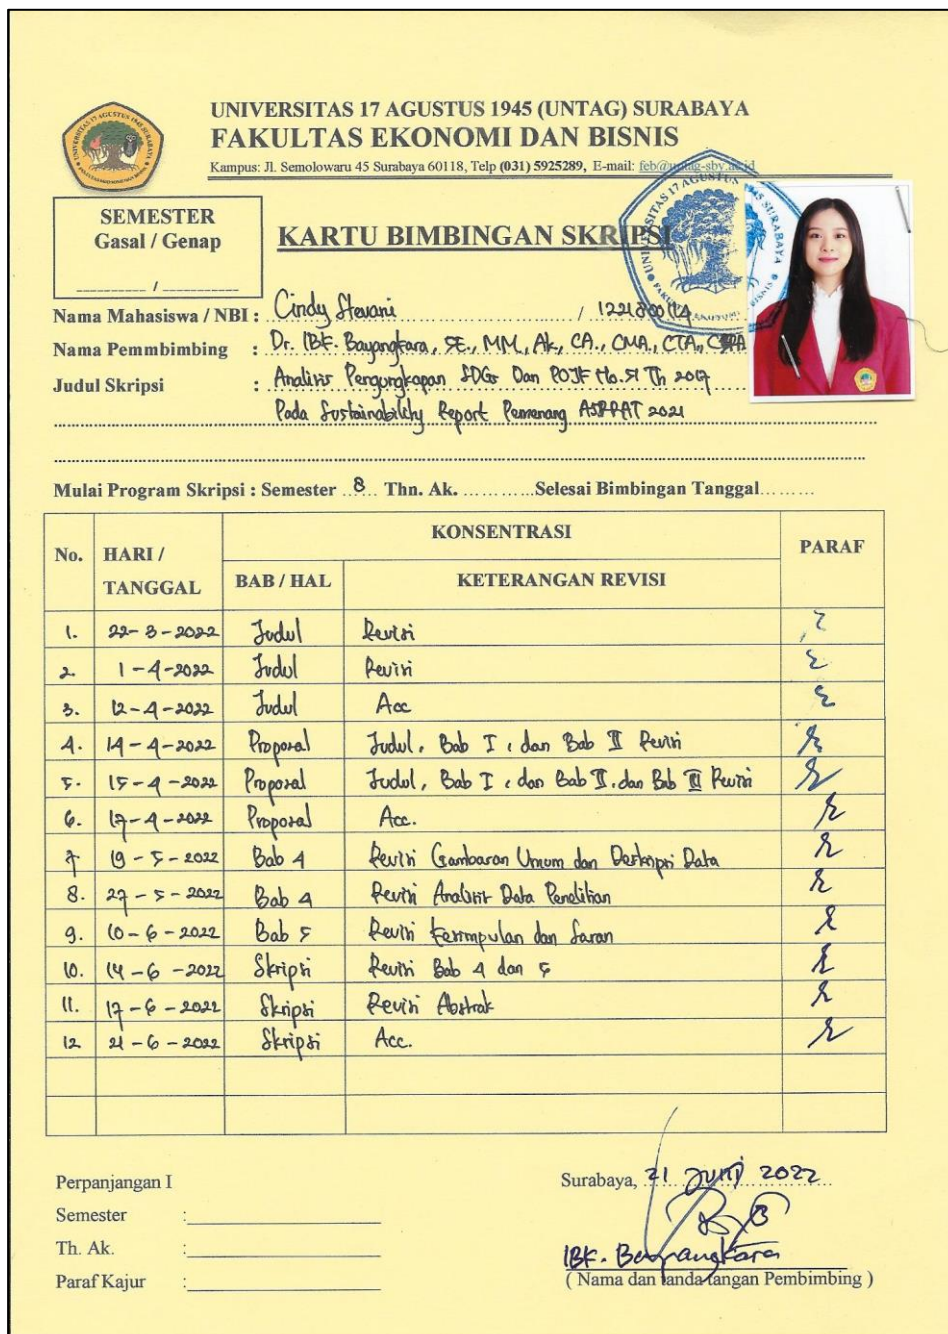 UNIVERSITAS 17 AGUSTUS 1945 (UNTAG) SURABAYA
FAKULTAS EKONOMI DAN BISNIS
Kampus: Jl. Semolowaru 45 Surabaya 60118, Telp (031) 5925289, E-mail: feb@untag-sby.ac.id
SEMESTER
Gasal / Genap
__________ / ___________
KARTU BIMBINGAN SKRIPSI
Nama Mahasiswa / NBI : Cindy Stevani / 1221800114
Nama Pemmbimbing : Dr. IBK. Bayangkara, SE., MM., Ak., CA., CMA., CTA.,
Judul Skripsi : Analisis Pengungkapan SDGs Dan POJK No.51 Th 2017
Pada Sustainability Report Pemenang ASRRAT 2021
Mulai Program Skripsi : Semester 8 Thn. Ak. ............Selesai Bimbingan Tanggal.........
No. HARI / TANGGAL KONSENTRASI PARAF
BAB / HAL KETERANGAN REVISI
1. 22-3-2022 Judul Revisi
2. 1-4-2022 Judul Revisi
3. 12-4-2022 Judul Acc
4. 14-4-2022 Proposal Judul, Bab I, dan Bab II Revisi
5. 15-4-2022 Proposal Judul, Bab I, dan Bab II, dan Bab III Revisi
6. 17-4-2022 Proposal Acc.
7. 19-5-2022 Bab 4 Revisi Gambaran Umum dan Deskripsi Data
8. 27-5-2022 Bab 4 Revisi Analisis Data Penelitian
9. 10-6-2022 Bab 5 Revisi Kesimpulan dan Saran
10. 14-6-2022 Skripsi Revisi Bab 4 dan 5
11. 17-6-2022 Skripsi Revisi Abstrak
12 21-6-2022 Skripsi Acc.
Perpanjangan I
Semester :
Th. Ak. :
Paraf Kajur :
Surabaya, 21 Juni 2022
IBK. Bayangkara
( Nama dan tanda tangan Pembimbing )